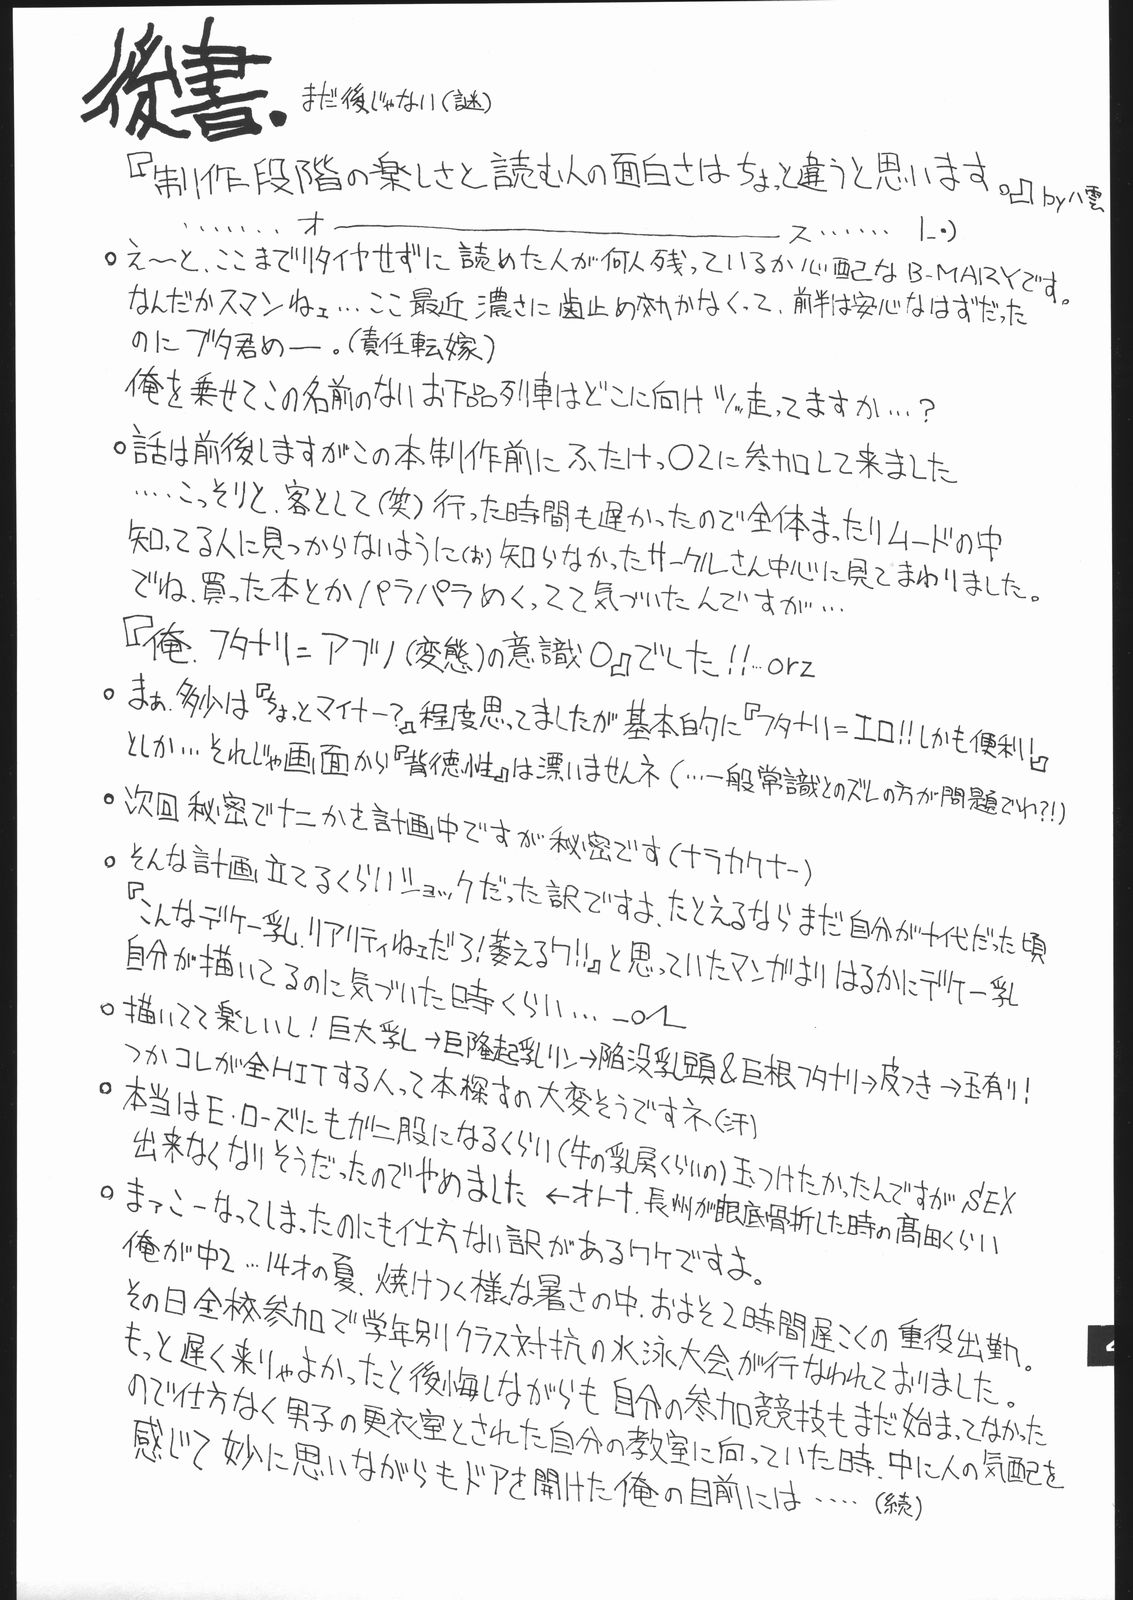 後書.
まだ後じゃない(謎)
『制作段階の楽しさと読む人の面白さはちょっと違うと思います。』by八雲
‥‥‥‥ オ――――――ス‥‥‥
。えーと、ここまでリタイヤせずに読めた人が何人残っているか心配なB-MARYです。
なんだかスマンねェ…ここ最近濃さに歯止め効かなくって、前半は安心なはずだった
のにブタ君めー。(責任転嫁)
俺を乗せてこの名前のないお下品列車はどこに向けツッ走ってますか…?
。話は前後しますがこの本制作前にふたけっ02に参加して来ました
‥‥こっそりと、客として(笑)行った時間も遅かったので全体まったりムードの中
知ってる人に見つからないように(お)知らなかったサークルさん中心に見てまわりました。
でね、買った本とかパラパラめくってて気づいたんですが…
『俺、フタナリ=アブノ(変態)の意識0』でした!!…orz
。まぁ、多少は『ちょっとマイナー?』程度思ってましたが基本的に『フタナリ=エロ!!しかも便利!』
としか…それじゃ画面から『背徳性』は漂いませんネ(…一般常識とのズレの方が問題でわ?!)
。次回秘密でナニかを計画中ですが秘密です(ナラカクナー)
。そんな計画立てるくらいショックだった訳ですよ、たとえるならまだ自分が十代だった頃
『こんなデケー乳、リアリティねェだろ!萎えるワ!!』と思っていたマンガよりはるかにデケー乳
自分が描いてるのに気づいた時くらい…
。描いてて楽しいし!巨大乳→巨隆起乳リン→陥没乳頭&巨根フタナリ→皮つき→玉有り!
つかコレが全HITする人って本探すの大変そうですネ(汗)
。本当はE・ローズにもが二股になるくらい(牛の乳房くらいの)玉つけたかったんですがSEX
出来なくなりそうだったのでやめました ←オトナ、長州が眼底骨折した時の髙田くらい
。まァこーなってしまったのにも仕方ない訳があるワケですよ。
俺が中2…14才の夏、焼けつく様な暑さの中、およそ2時間遅こくの重役出勤。
その日全校参加で学年別クラス対抗の水泳大会が行なわれておりました。
もっと遅く来りゃよかったと後悔しながらも自分の参加競技もまだ始まってなかった
ので仕方なく男子の更衣室とされた自分の教室に向っていた時、中に人の気配を
感じて妙に思いながらもドアを開けた俺の目前には‥‥(続)